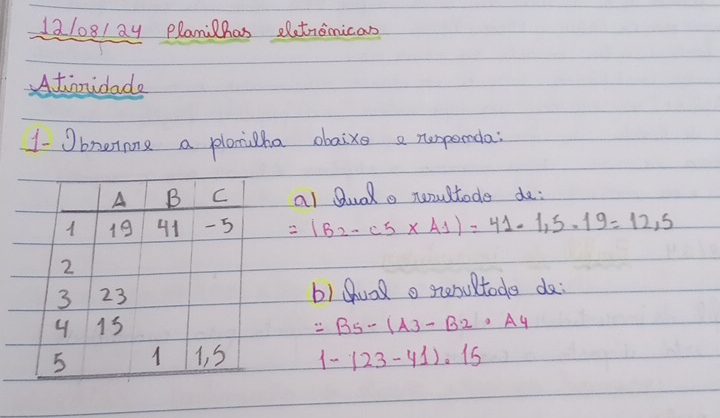 12/08/24 Planilhas eletrônicas
Atividade
1- Observe a planilha abaixo e responda:
A B C
1 19 41 -5
2
3 23
4 15
5 1 1,5
a) Qual o resultado de:
= (B2 - C5 x A1) = 41 - 1,5 . 19 = 12,5
b) Qual o resultado de:
= B5 - (A3 - B2 . A4
1 - (23 - 41) . 15